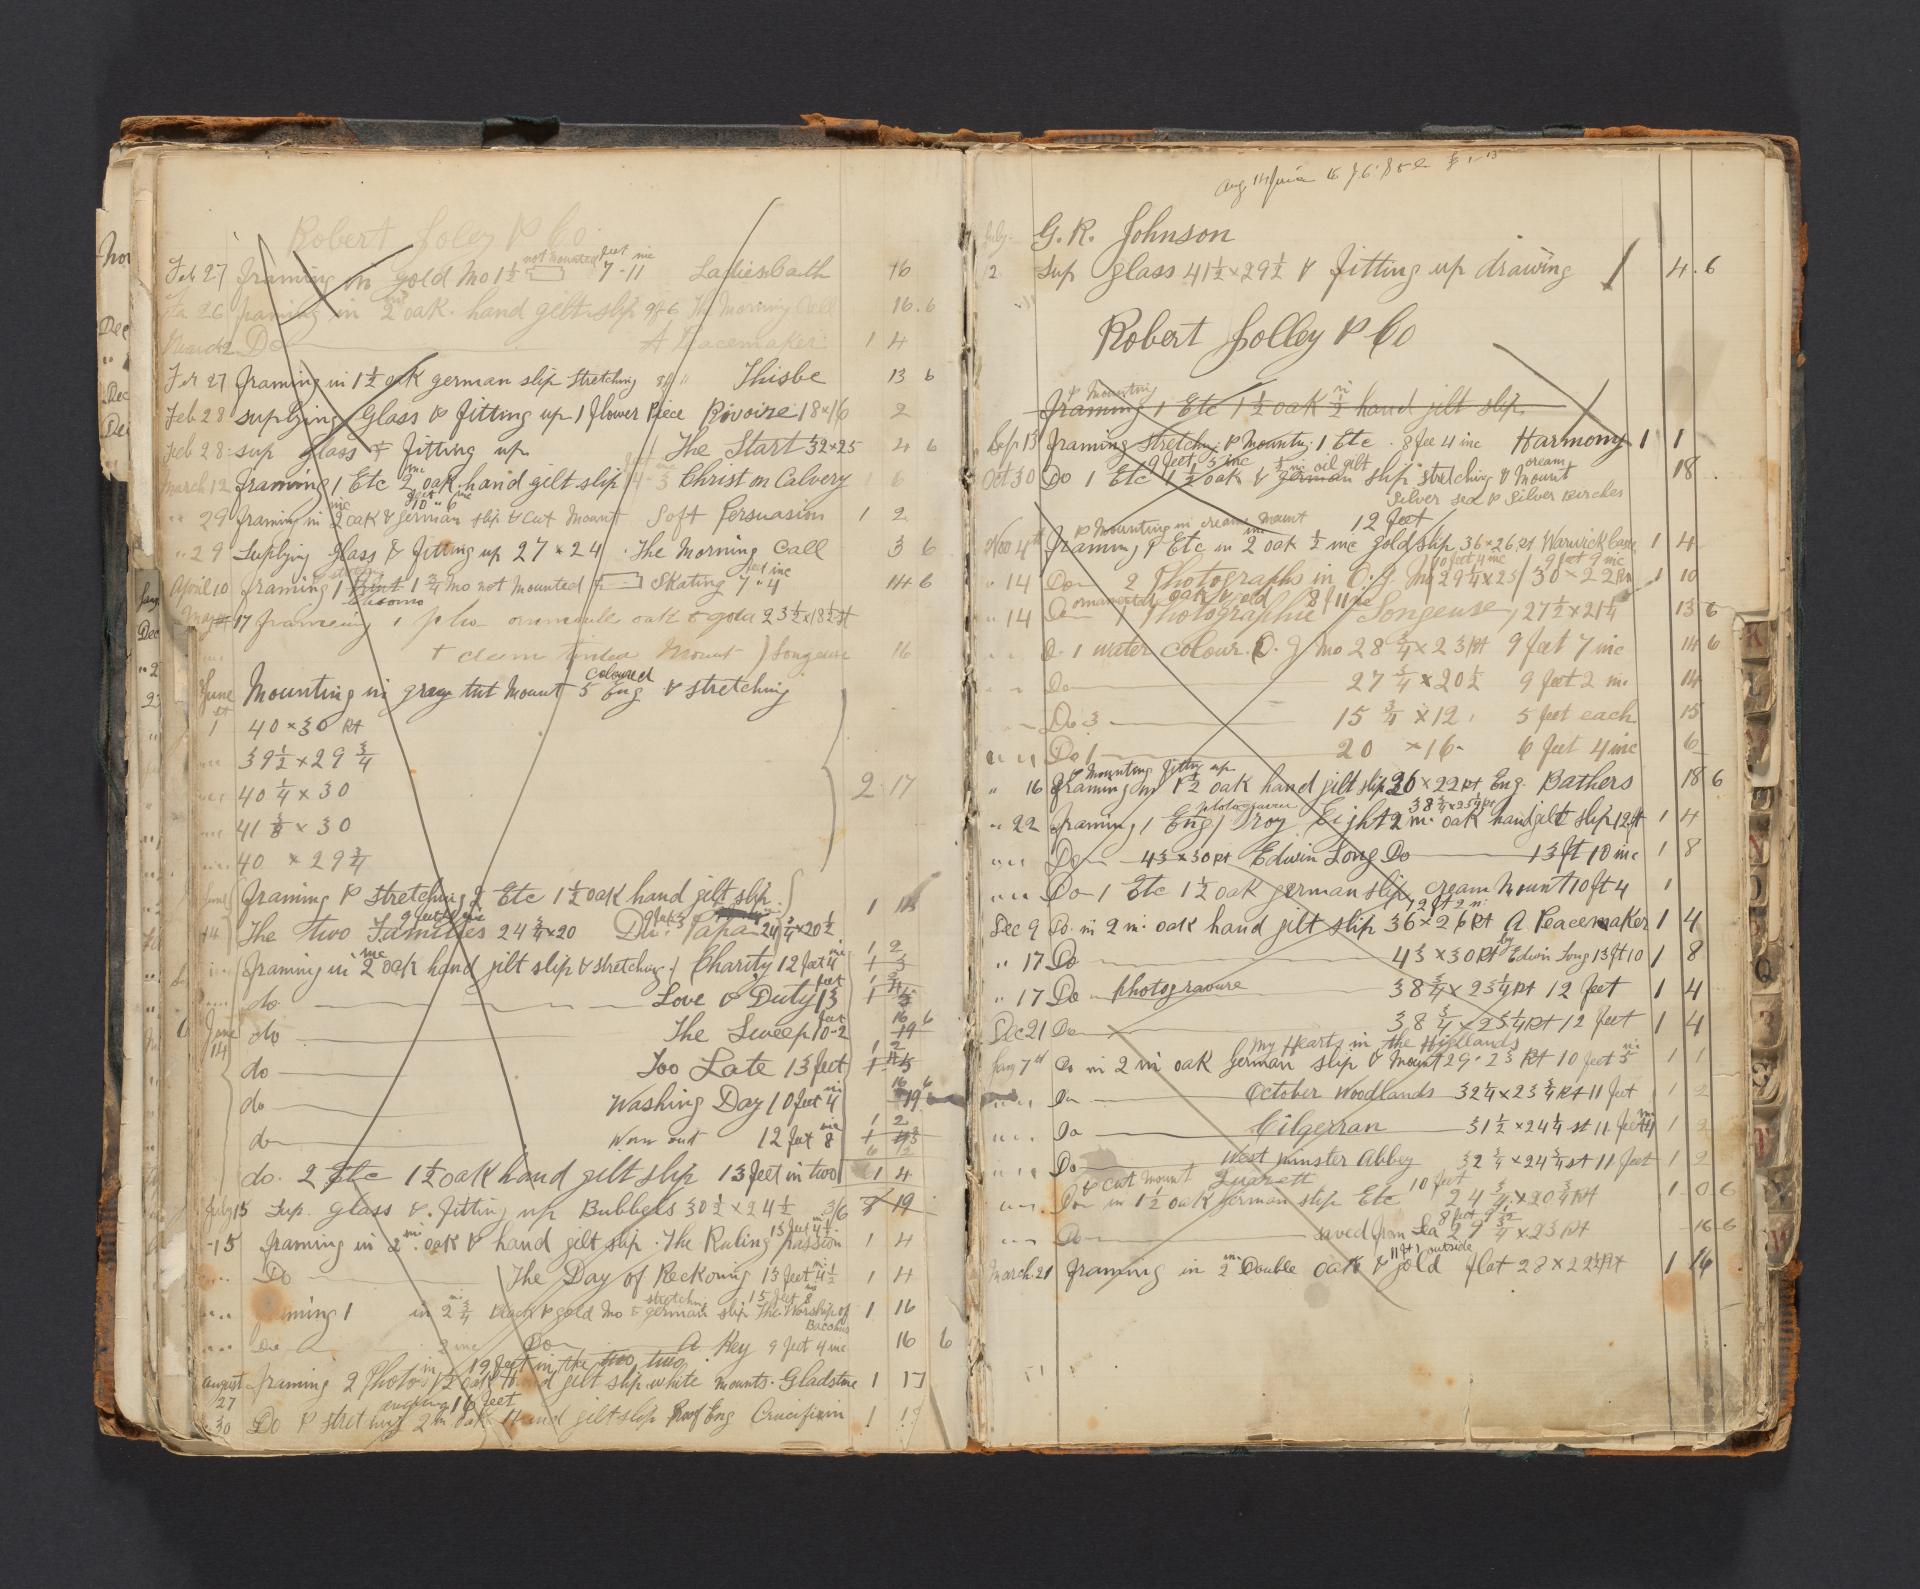 Robert Jolley & Co.
Feb 27 framing in gold Mo 1½ not mounted 7 - 11 feet inc Ladies Bath 16
26 framing in 2 oak hand gilt slip 9 ft 6 The Morning Call 16.6
March 2 Do A Peacemaker 1 4
Feb 27 framing in 1½ oak german slip stretching Thisbe 13 6
Feb 28 suplying Glass & fitting up 1 flower Piece Rivoire 18×16 2
Feb 28 sup glass & fitting up The Start 32×25 4 6
March 12 framing 1 Etc 2 inc oak hand gilt slip Christ on Calvery 1 6
" 29 framing in 2 inc oak & german slip & cut Mount 10 " 6 feet inc Soft Persuasion 1 2
" 29 Suplying glass & fitting up 27 × 24 The Morning Call 3 6
April 10 framing 1 Print 1¾ Mo not Mounted Skating 7 " 4 feet inc 14 6
Chromo
May 17 framing 1 pho oak & gold 23½×18½ st
+ tinted Mount Songeuse 16
June 1st Mounting in gray tint Mount 5 coloured Eng & stretching
40 × 30 pt
39½ × 29¾
40¼ × 30
41⅜ × 30
40 × 29¾
2 17
June 14 framing & stretching 2 Etc 1½ oak hand gilt slip
The two Families 24¾×20 Papa 24¾×20½ 1
framing in 2 inc oak hand gilt slip & stretching Charity 12 feet 4 in 1 2
do Love & Duty 13 feet 1
June 14 do The Sweep 10-2 feet 16 6
do Too Late 13 feet 1 2
do Washing Day 10 feet 4 in 16 6
do Worn out 12 feet 8 inc 1 2
do. 2 Etc 1½ oak hand gilt slip 13 feet in two 1 4
July 15 Sup. glass & fitting up Bubbels 30½ × 24½ 3/6
- 15 framing in 2 in oak & hand gilt slip. The Ruling passion 13 feet 4½ in 1 4
Do The Day of Reckoning 13 feet 4½ in 1 4
framing 1 in 2¾ in black & gold Mo & german slip stretching 15 feet 8 in The Worship of Bacchus 1 16
Do 2 inc Do A Key 9 feet 4 inc 16 6
august 27 framing 2 Photos 1½ in oak Hand gilt slip white mounts. Gladstone 19 feet in the two 1 17
30 Do & stretching 2 in oak Hand gilt slip Proof Eng Crucifixion 16 feet 1
Aug 14
G. R. Johnson
July 2 Sup glass 41½×29½ & fitting up drawing 4.6
Robert Jolley & Co
& Mounting
framing 1 Etc 1½ oak ½ in hand gilt slip
Sep 13 framing stretchg & Mountg 1 Etc. 8 fee 4 inc Harmony 1 1
Oct 30 Do 1 Etc 9 feet 5 inc 1½ oak & ½ in oil gilt german slip stretching & cream Mount 18
Silver sea & Silver Birches
& Mounting in cream Mount 12 feet
Nov 4th framing & Etc in 2 in oak ½ inc gold slip 36×26 pt Warwick Lane 1 4
" 14 Do 2 Photographs in O. G. Mo 29¼×25 10 feet 4 inc 30×22 pt 9 feet 9 inc 1 10
" 14 Do 1 Photographic ornamented oak & gold 8 f 11 inc Songeuse 27½×21¼ 13 6
" " Do 1 water colour. O. G Mo 28¾×23 pt 9 feet 7 inc 14 6
" " Do 27¾×20½ 9 feet 2 in. 14
" " Do 3 15¾ × 12 5 feet each 15
" " Do 1 20 × 16 6 feet 4 inc 6
& Mounting fitting up
" 16 framing in 1½ oak hand gilt slip 26×22 pt Eng. Bathers 18 6
" 22 framing 1 Eng photogravure Troy Eight 2 in. oak hand gilt slip 38¾×25¼ pt 12 ft 1 4
" " Do 43×30 pt Edwin Long Do 13 ft 10 inc 1 8
" " Do 1 Etc 1½ oak german slip cream Mount 10 ft 4 1
Dec 9 Do in 2 in. oak hand gilt slip 36×26 pt 12 ft 2 in A Peacemaker 1 4
" 17 Do 43×30 pt by Edwin Long 13 ft 10 1 8
" 17 Do photogravure 38¾×25¼ pt 12 feet 1 4
Dec 21 Do 38¾×25¼ pt 12 feet 1 4
My Hearts in the Highlands
Jany 7th Do in 2 in oak german slip & Mount 29 × 23 pt 10 feet 5 in 1 1
" " Do October Woodlands 32¼×23¾ pt 11 feet 1 2
" " Do Cilgerran 31½×24¼ st 11 feet 1 2
" " Do West minster Abbey 32¾×24¾ st 11 feet 1 2
& cut mount Quarett 10 feet
" " Do in 1½ oak german slip Etc 24¾×20¾ pt 1 0 6
" " Do saved from Sea 29¾×23 pt 16 6
March 21 framing in 2 in Double oak & gold flat 11 ft 1 outside 28×22½ pt 1 16